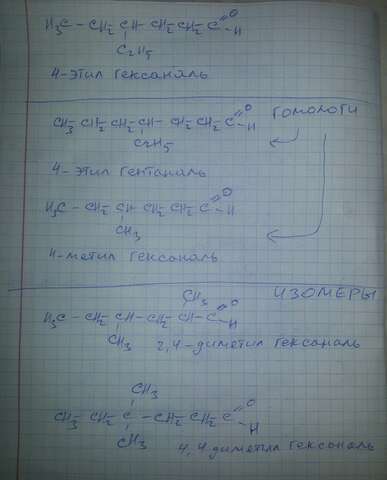 H₃C – CH₂ – CH – CH₂ – CH₂ – C – H
O
C₂H₅
4-этил гексаналь
ГОМОЛОГИ
CH₃ – CH₂ – CH₂ – CH – CH₂ – CH₂ – C – H
O
C₂H₅
4-этил гептаналь
H₃C – CH₂ – CH – CH₂ – CH₂ – C – H
O
CH₃
4-метил гексаналь
ИЗОМЕРЫ
CH₃
O
H₃C – CH₂ – CH – CH₂ – CH – C
H
CH₃
2,4-диметил гексаналь
CH₃
CH₃ – CH₂ – C – CH₂ – CH₂ – C
O
H
CH₃
4,4-диметил гексаналь